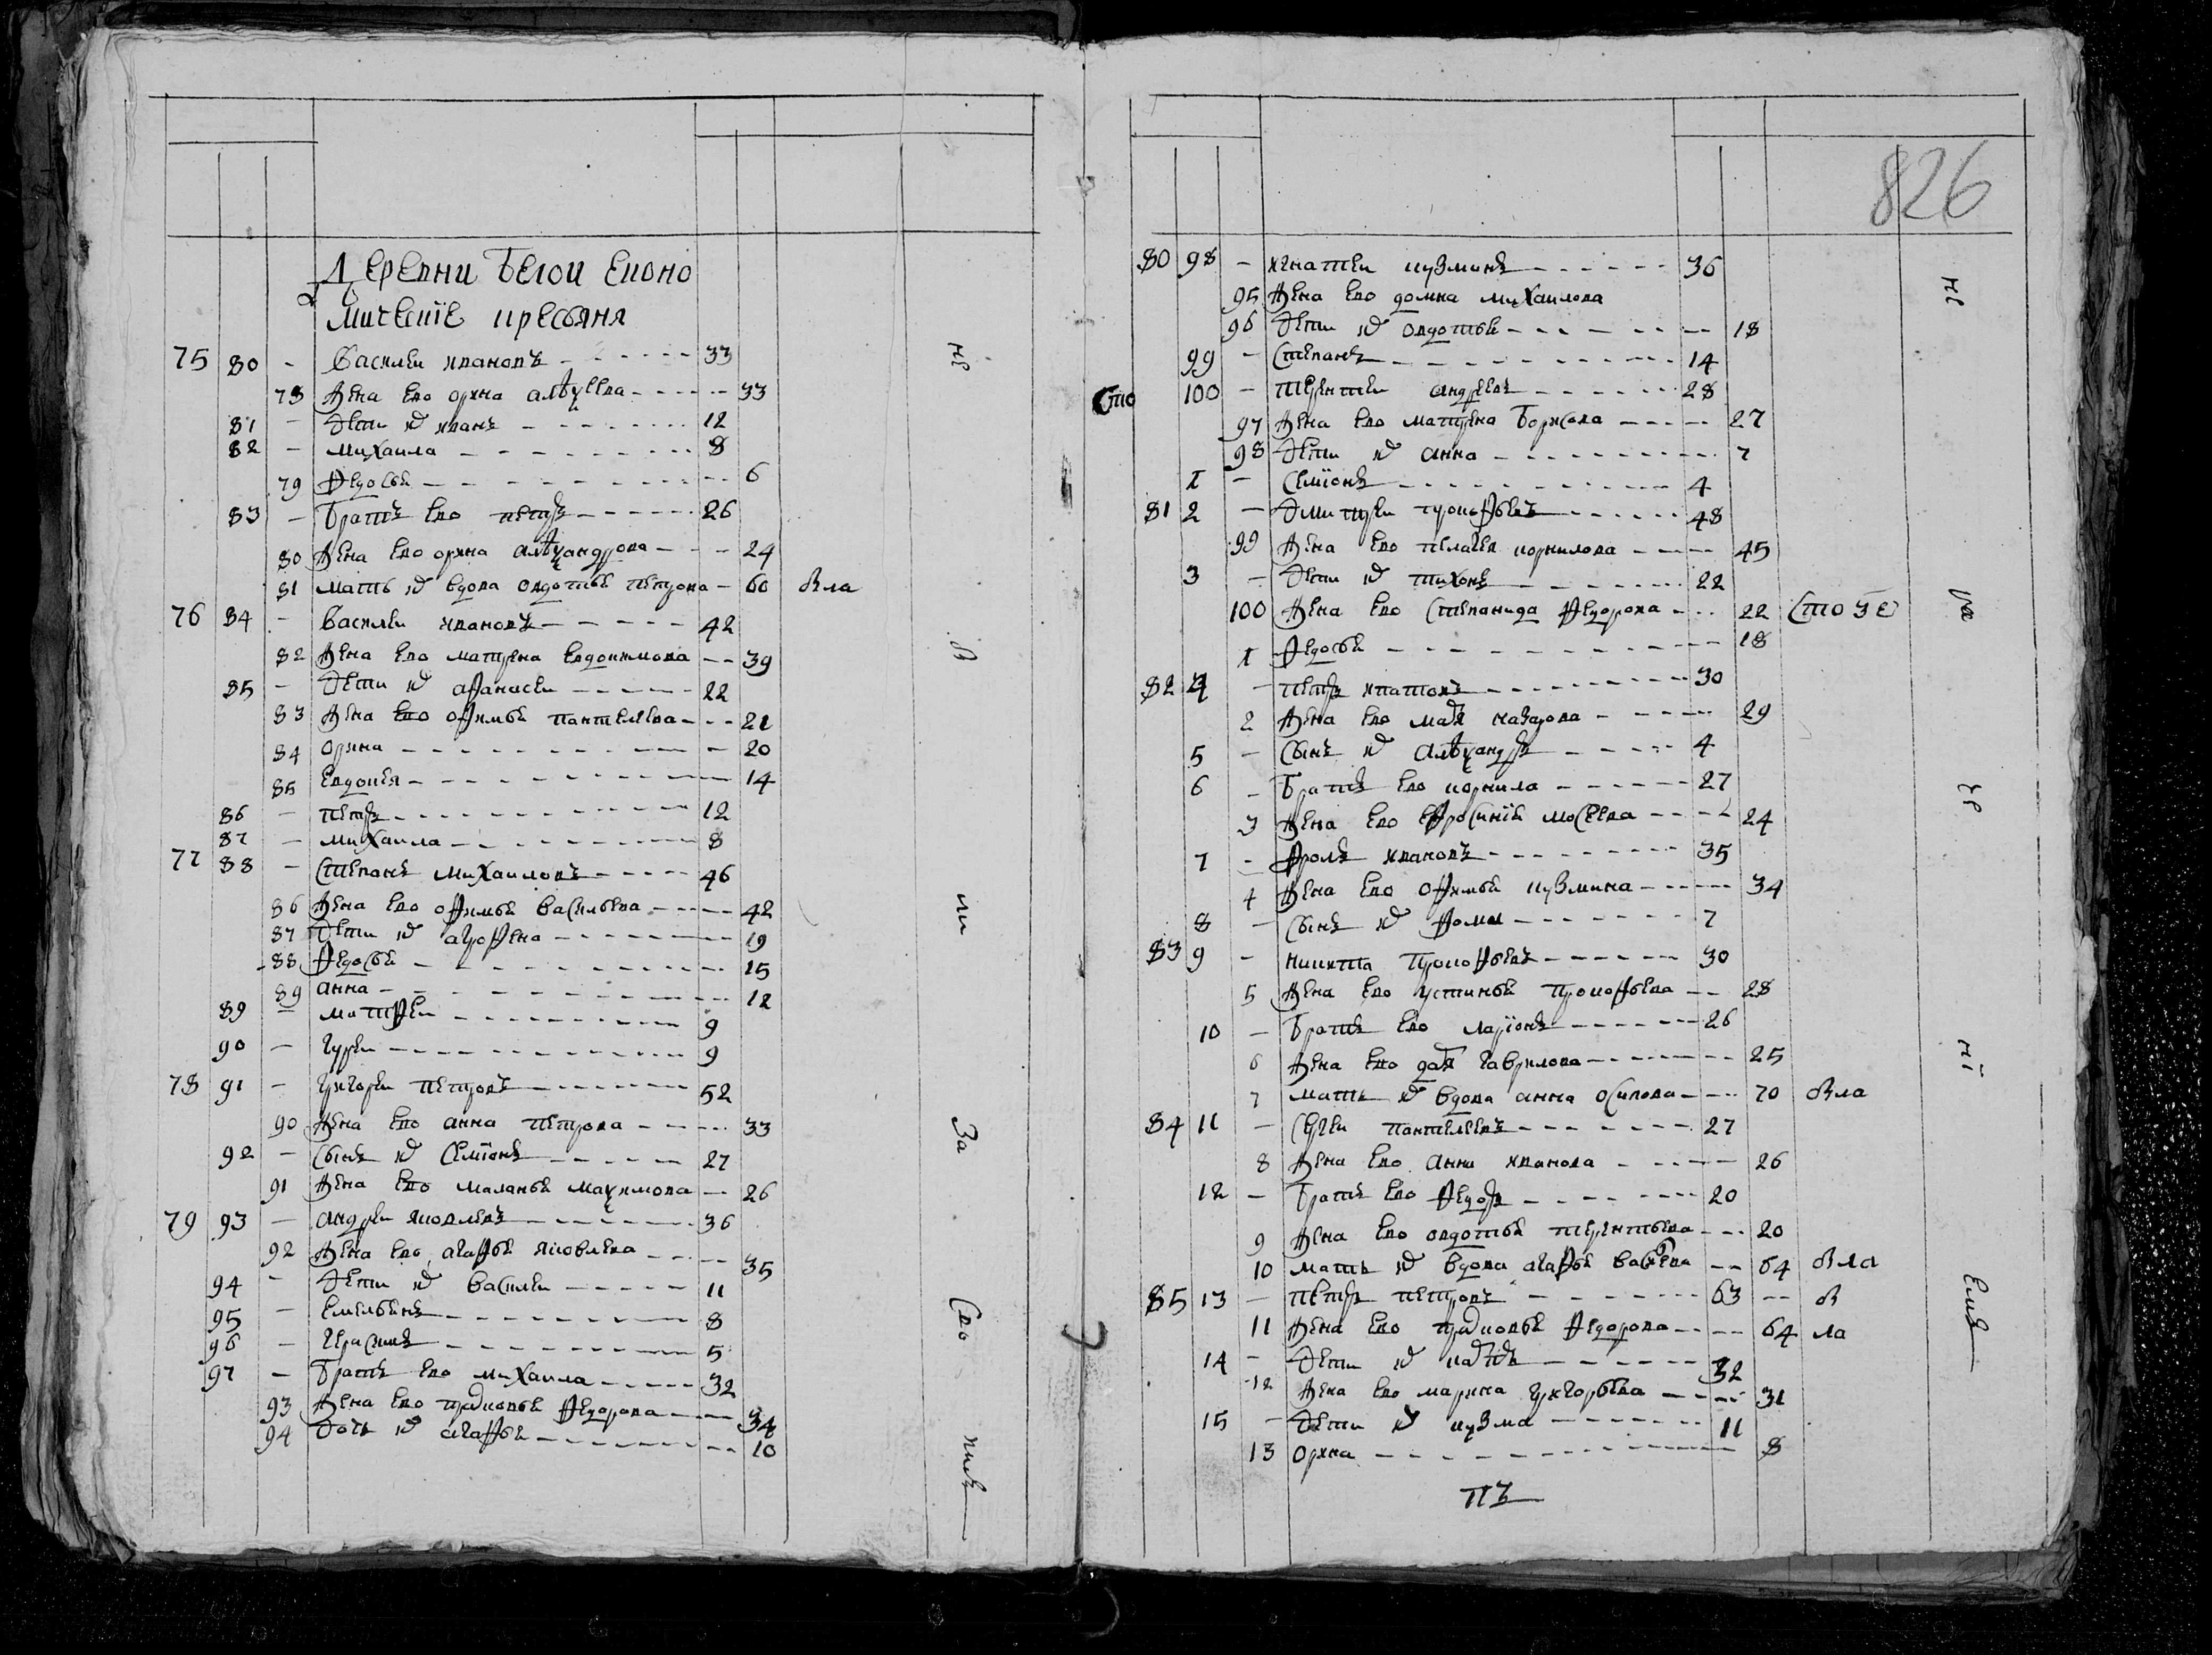 Деревни Белои Еконо
мическïе кресьяня
75 80 - Василеи ивановъ - 33
78 Жена ево орина алѣѯеева - 33
81 - Дети их иванъ - 12
82 - михаила - 8
79 Федосья - 6
83 - Братъ ево петръ - 26
80 Жена ево орина алѣѯандрова - 24
81 мать их вдова овдотья петрова - 60 вла
76 84 - Василеи ивановъ - 42
82 Жена ево матрена евдокимова - 39
85 - Дети их афанасеи - 22
83 Жена ево офимья пантелеева - 21
84 орина - 20
85 Евдокея - 14
86 - петръ - 12
87 - михаила - 8
77 88 - Степанъ михаиловъ - 46
86 Жена ево офимья васильева - 42
87 Дети их агрофена - 19
88 Федосья - 15
89 анна - 12
89 - матфеи - 9
90 - гуреи - 9
78 91 - григореи петровъ - 52
90 Жена ево анна петрова - 33
92 - Сынъ их Семïонъ - 27
91 Жена ево маланья маѯимова - 26
79 93 - андреи яковлевъ - 36
92 Жена ево агафья яковлева - 35
94 - Дети их василеи - 11
95 - емельянъ - 8
96 - герасимъ - 5
97 - Братъ ево михаила - 32
93 Жена ево прасковья Федорова - 34
94 Дочь их агафья - 10
не
в
ки
За
Сво
826
80 98 - игнатеи кузминъ - 36
95 Жена ево домна михаилова
96 Дети их овдотья - 18
99 - Степанъ - 14
Сто 100 - терентеи андреевъ - 28
97 Жена ево матрена Борисова - 27
98 Дети их анна - 7
1 - Семïонъ - 4
81 2 - Дмитреи прокофьевъ - 48
99 Жена ево пелагея корнилова - 45
3 - Дети их тихонъ - 22
100 Жена ево Степанида Федорова - 22 Сто
1 Федосья - 18
82 4 - петръ ипатовъ - 30
2 Жена ево марья назарова - 29
5 - Сынъ их алѣѯандръ - 4
6 - Братъ ево корнила - 27
3 Жена ево ефросинïя мосеева - 24
7 - Фролъ ивановъ - 35
4 Жена ево офимья кузмина - 34
8 - Сынъ их Фома - 7
83 9 - никита прокофьевъ - 30
5 Жена ево устинья прокофьева - 28
10 - Братъ ево ларïонъ - 26
6 Жена ево дарья гаврилова - 25
7 мать их вдова анна осипова - 70 вла
84 11 - Сергеи пантелеевъ - 27
8 Жена ево анна иванова - 26
12 - Братъ ево Федоръ - 20
9 Жена ево овдотья терентьева - 20
10 мать их вдова агафья васильева - 64 вла
85 13 - петръ петровъ - 63 - в
11 Жена ево прасковья Федорова - 64 ла
14 - Дети их карпъ - 32
12 Жена ево марина григорьева - 31
15 - Дети их кузма - 11
13 орина - 8
не
нï